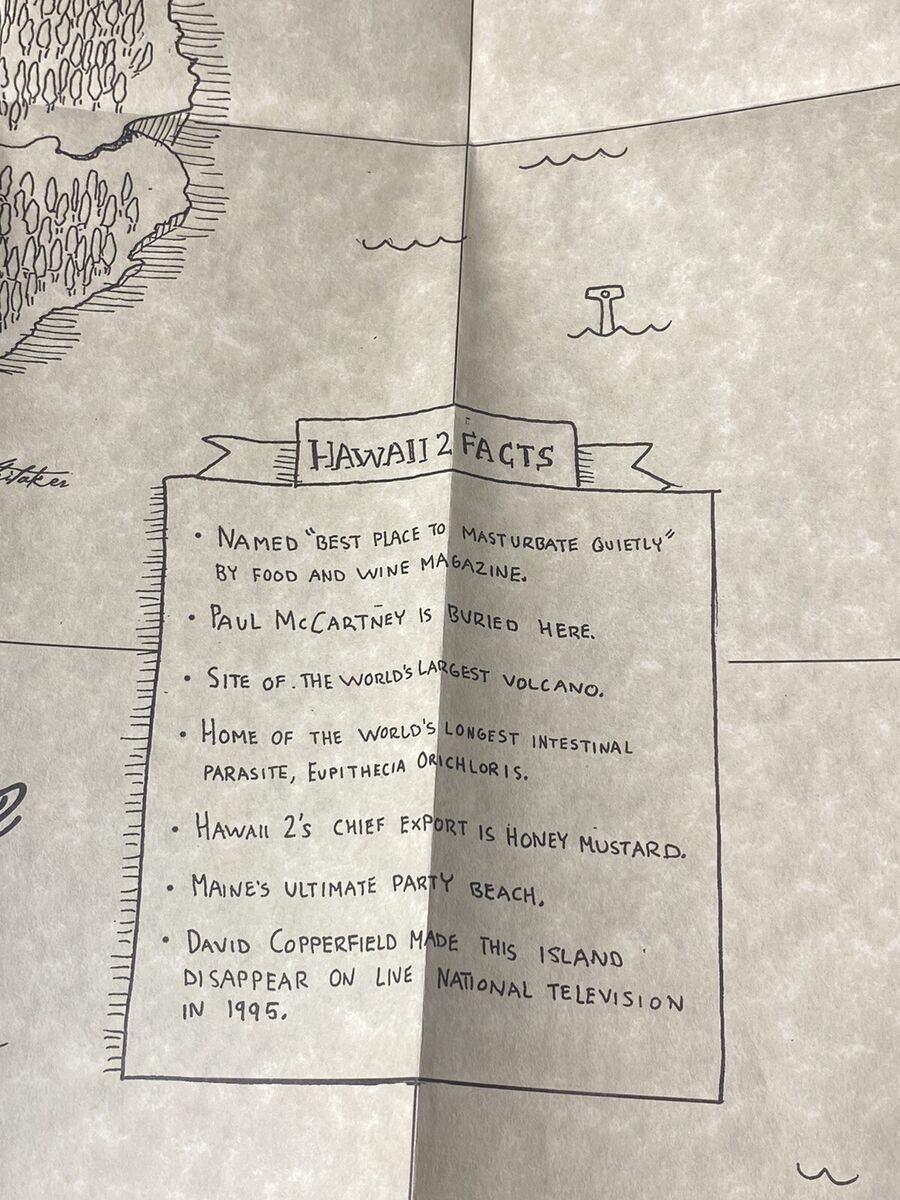 HAWAII 2 FACTS
• NAMED "BEST PLACE TO MASTURBATE QUIETLY"
BY FOOD AND WINE MAGAZINE.
• PAUL McCARTNEY IS BURIED HERE.
• SITE OF THE WORLD'S LARGEST VOLCANO.
• HOME OF THE WORLD'S LONGEST INTESTINAL
PARASITE, EUPITHECIA ORICHLORIS.
• HAWAII 2'S CHIEF EXPORT IS HONEY MUSTARD.
• MAINE'S ULTIMATE PARTY BEACH.
• DAVID COPPERFIELD MADE THIS ISLAND
DISAPPEAR ON LIVE NATIONAL TELEVISION
IN 1995.